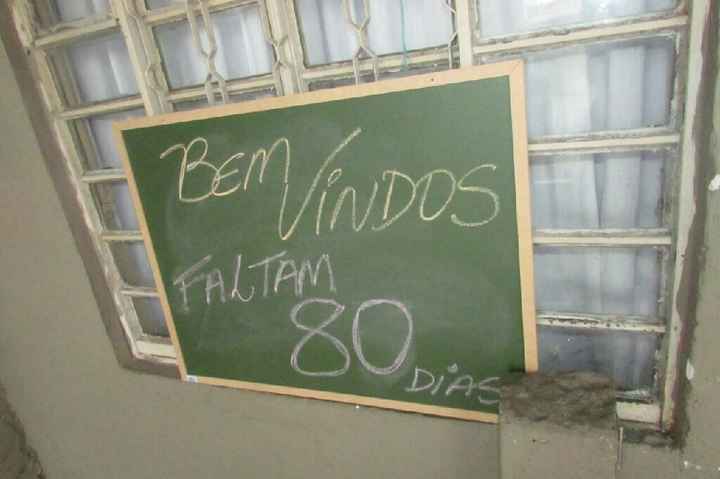 BEM VINDOS
FALTAM
80
DIAS